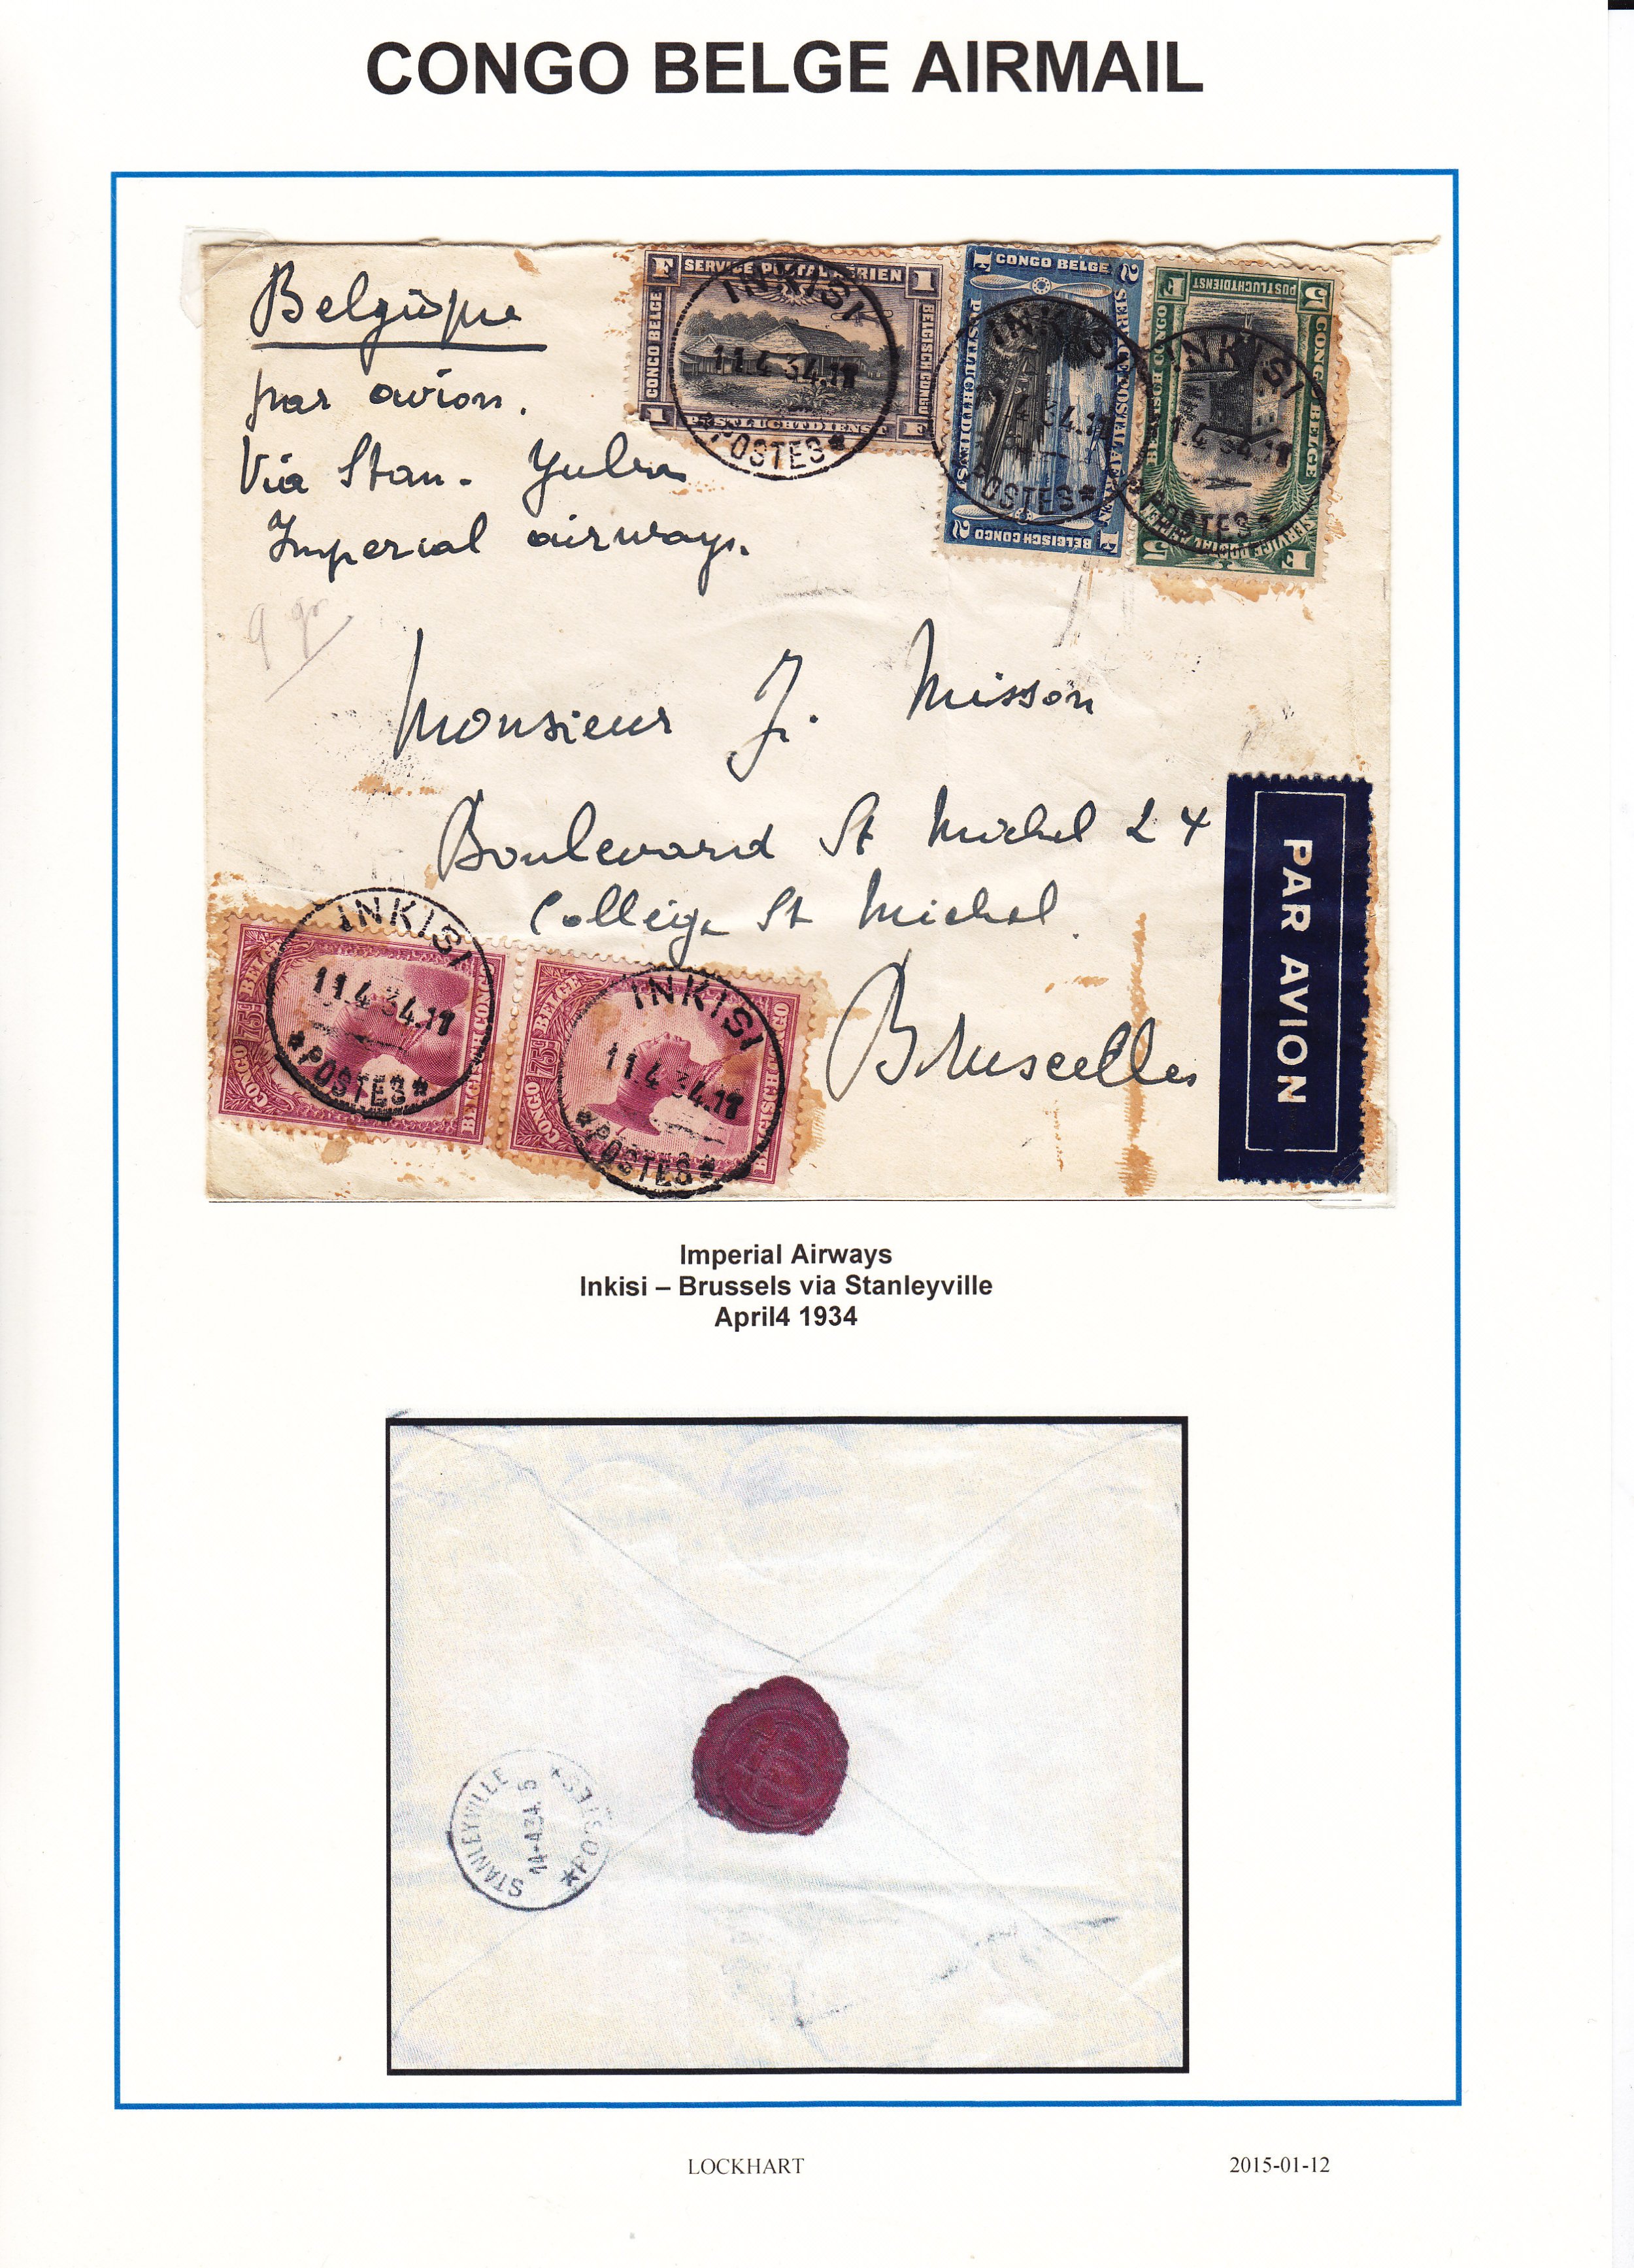 CONGO BELGE AIRMAIL
Belgique
par avion.
Via Stan. Juba
Imperial airways.
9 gr
F SERVICE POSTAL AÉRIEN 1
CONGO BELGE
BELGISCH CONGO
1 POSTLUCHTDIENST F
INKISI
11.4 34.17
*POSTES*
F CONGO BELGE 2
SERVICE POSTAL AÉRIEN
POSTLUCHTDIENST
2 BELGISCH CONGO F
INKISI
11.4 34.17
POSTES*
F POSTLUCHTDIENST 5
CONGO BELGE
BELGISCH CONGO
5 SERVICE POSTAL F
INKISI
11.4 34.17
*POSTES*
Monsieur J. Misson
Boulevard St Michel 24
College St Michel.
Bruxelles
PAR AVION
CONGO 75c BELGE
BELGISCH CONGO
INKISI
11.4 34.17
*POSTES*
CONGO 75c BELGE
BELGISCH CONGO
INKISI
11.4 34.17
*POSTES*
Imperial Airways
Inkisi – Brussels via Stanleyville
April4 1934
STANLEYVILLE
14-4.34. 5
*POSTES*
LOCKHART 2015-01-12